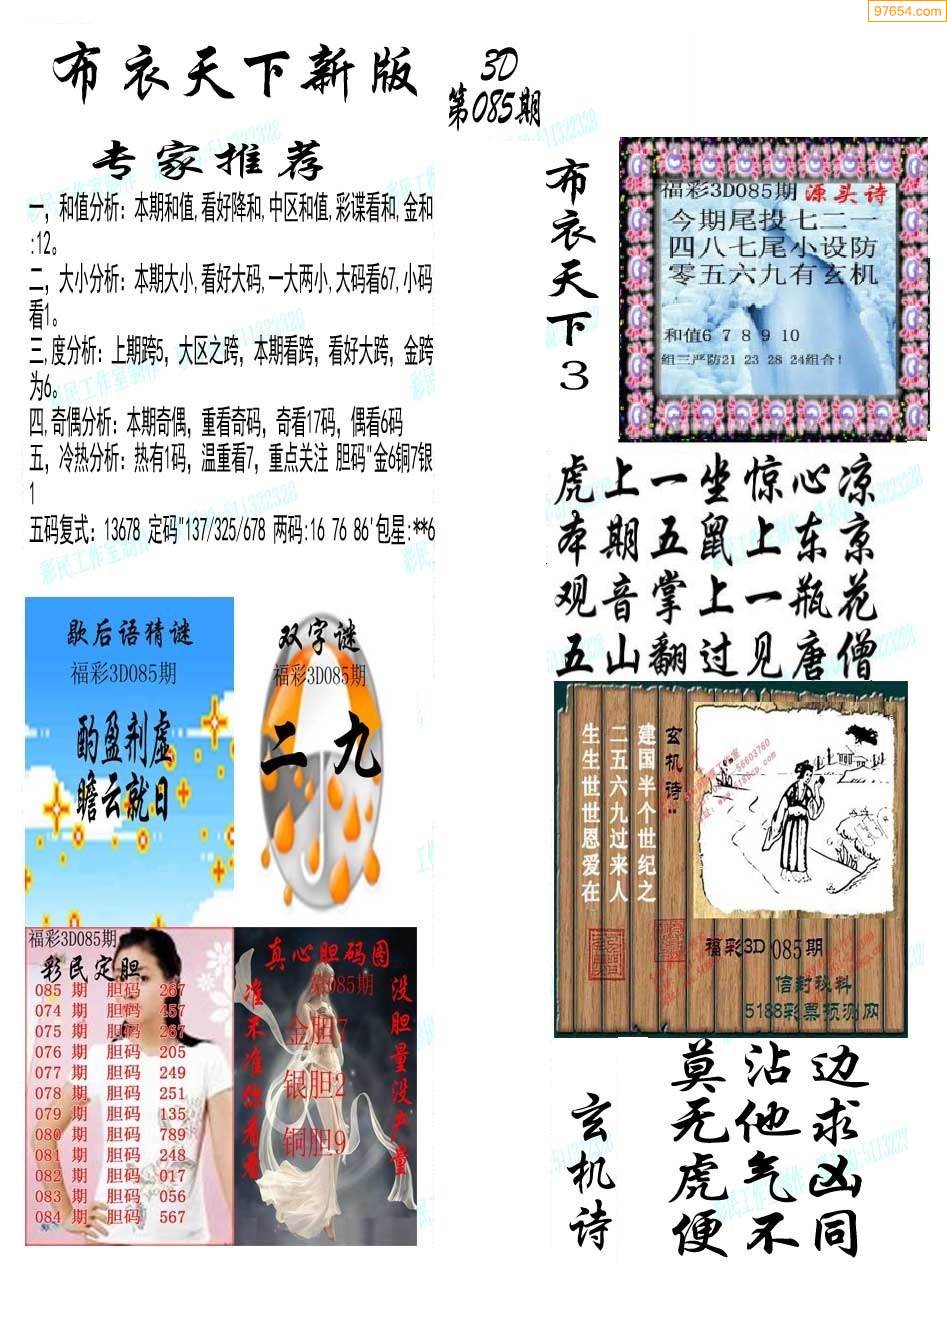 97654.com
布衣天下新版
3D
第085期
专家推荐
一，和值分析：本期和值,看好降和,中区和值,彩谍看和,金和
:12。
二、大小分析：本期大小,看好大码,一大两小,大码看67,小码
看1。
三,度分析：上期跨5，大区之跨，本期看跨，看好大跨，金跨
为6。
四,奇偶分析：本期奇偶，重看奇码，奇看17码，偶看6码
五，冷热分析：热有1码，温重看7，重点关注 胆码"金6铜7银
1
五码复式：13678 定码"137/325/678 两码:16 76 86'包星:**6
布衣天下3
福彩3D085期 源头诗
今期尾投七二一
四八七尾小设防
零五六九有玄机
和值6 7 8 9 10
组三严防21 23 28 24组合!
虎上一坐惊心凉
本期五鼠上东京
观音掌上一瓶花
五山翻过见唐僧
歇后语猜谜
福彩3D085期
酌盈剂虚
瞻云就日
双字谜
福彩3D085期
二九
玄机诗:
建国半个世纪之
二五六九过来人
生生世世恩爱在
福彩3D 085期
信封秘料
5188彩票预测网
福彩3D085期
彩民定胆
085 期 胆码 267
074 期 胆码 457
075 期 胆码 267
076 期 胆码 205
077 期 胆码 249
078 期 胆码 251
079 期 胆码 135
080 期 胆码 789
081 期 胆码 248
082 期 胆码 017
083 期 胆码 056
084 期 胆码 567
真心胆码图
第085期
准不准你看看
金胆7
银胆2
铜胆9
没胆量没产量
玄机诗
莫沾边
无他求
虎气凶
便不同